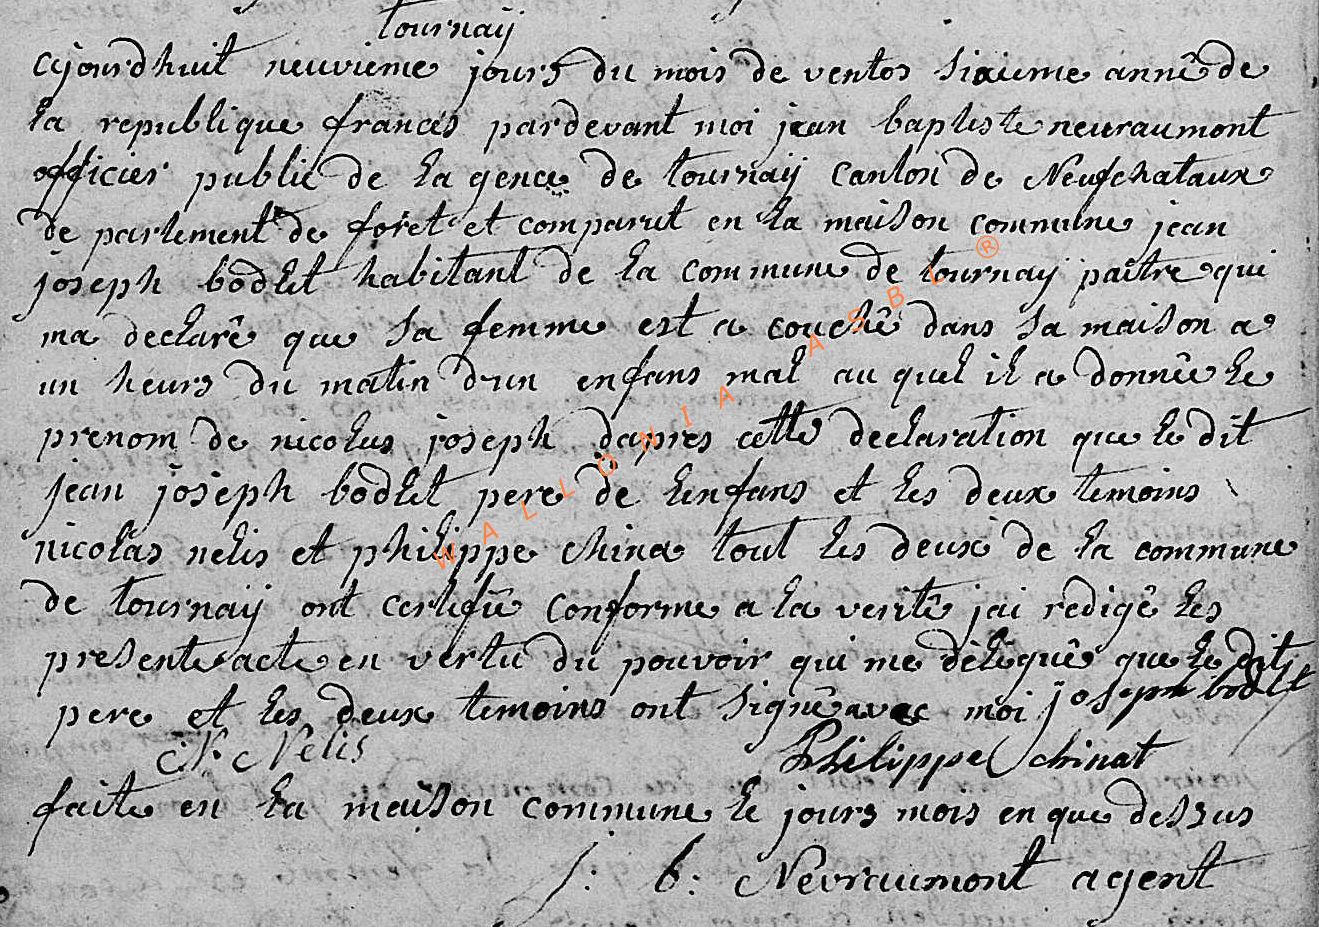 tournaÿ
cĳourdhuit neuvieme jours du mois de ventos sixieme annê de
la republique frances pardevant moi jean baptiste nevraumont
officier public de la gence de tournaÿ canton de Neufchataux
de partement de foret et comparut en la maison commune jean
joseph bodlet habitant de la commune de tournaÿ paitre qui
ma declarê que sa femme est a couchê dans sa maison a
un heurs du matin dun enfans mal au quel il a donnêe le
prenom de nicolas joseph dapres cette declaration que le dit
jean joseph bodlet pere de lenfans et les deux temoins
nicolas nelis et philippe china tout les deux de la commune
de tournaÿ ont certifiê conforme a la veritê jai rêdigê les
presente acte en vertu du pouvoir qui me dêlêguê que le dit
pere et les deux temoins ont signê avec moi joseph bodlet
N. Nelis Philippe chinat
faite en la maison commune le jours mois en que dessus
j: b: Nevraumont agent
WALLONIA ASBL ®